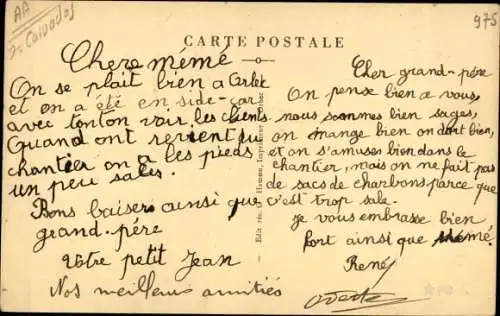 AA
Calvados
975
CARTE POSTALE
Chere mémé
On se plait bien a
et on a été en side-car
avec tonton voir les clients
Quand ont revient du
chantier on a les pieds
un peu sales.
Bons baisers ainsi que
grand-père
Votre petit Jean
Nos meilleurs amitiés
Cher grand-père
On pense bien a vous,
nous sommes bien sages,
on mange bien on dort bien,
et on s'amuses bien dans le
chantier, mais on ne fait pas
de sacs de charbons parce que
c'est trop sale.
Je vous embrasse bien
fort ainsi que mémé.
René